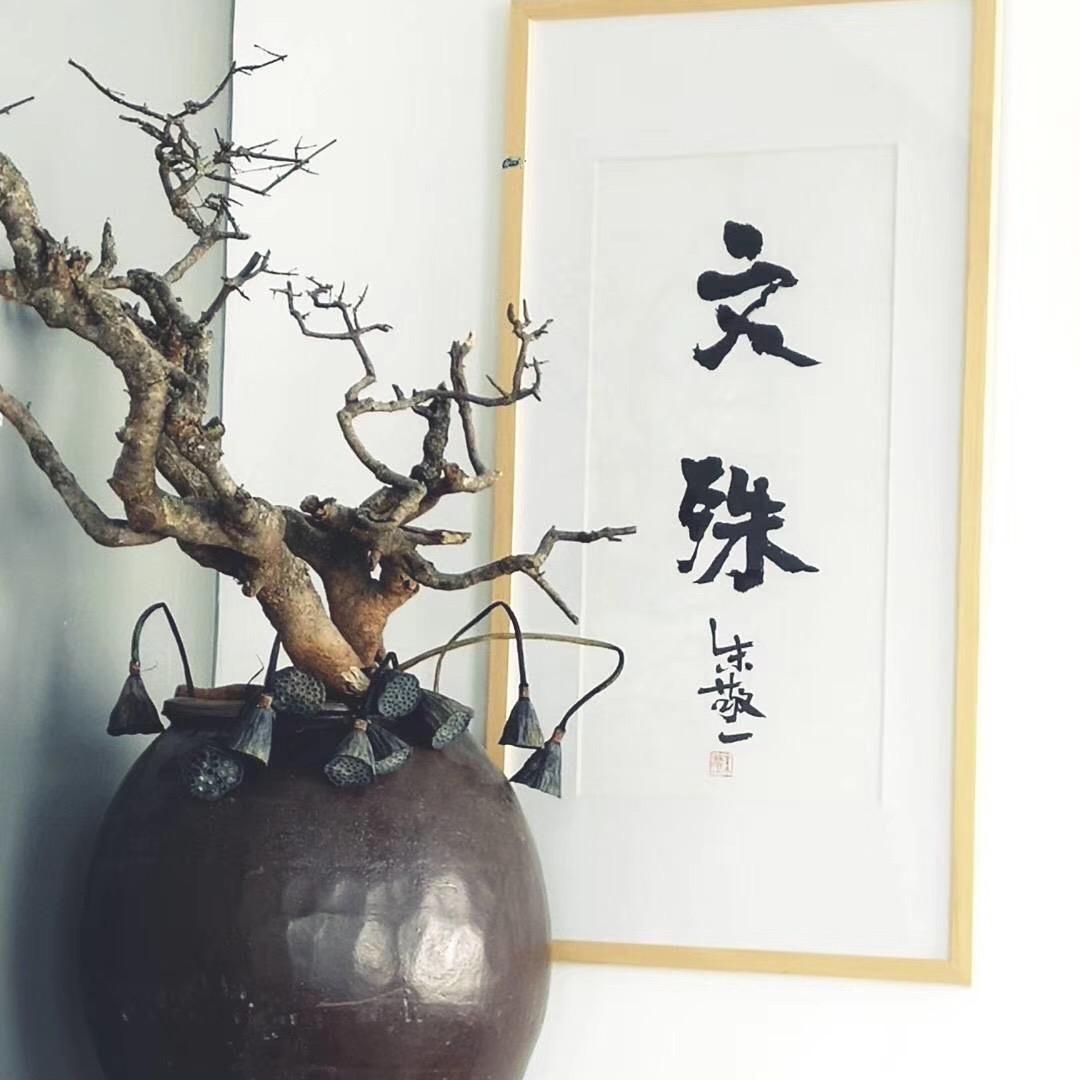 文殊
朱敬一